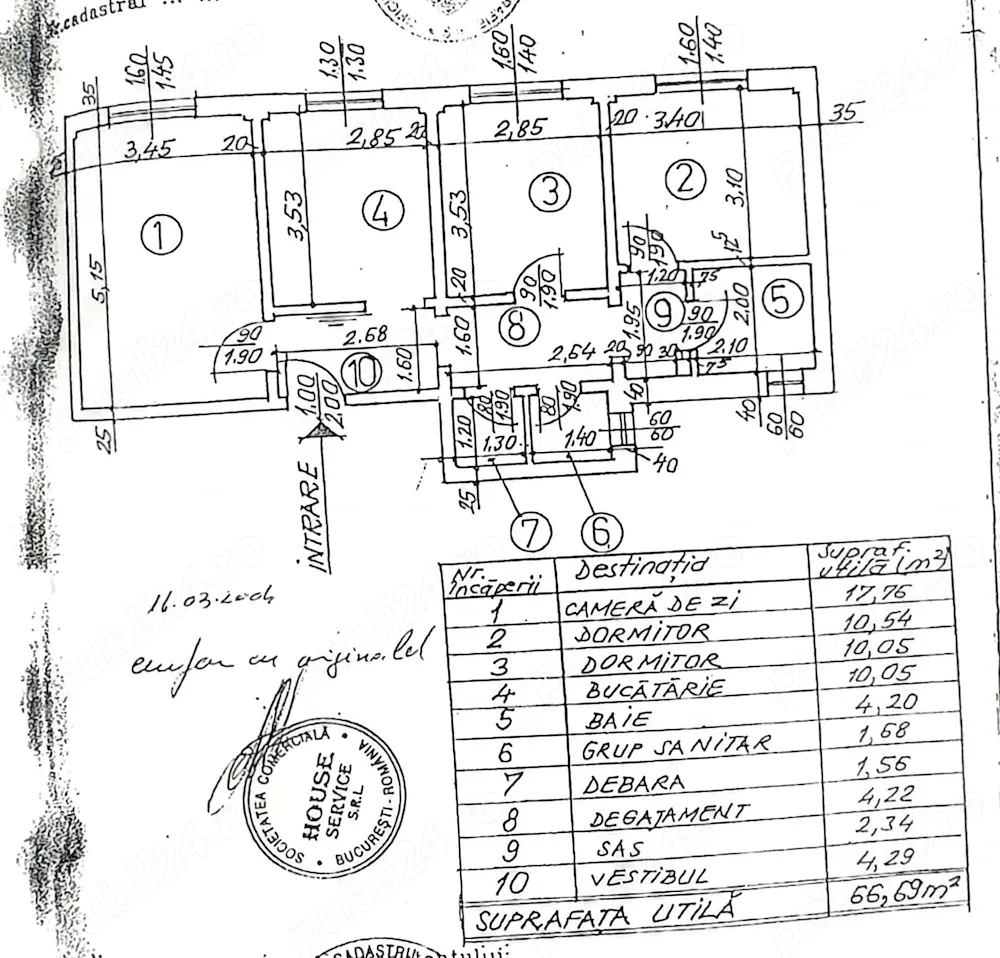 cadastral
1.60
1.45
1.30
1.30
1.60
1.40
1.60
1.40
35
3,45
20
2,85
20
2,85
20
3.40
35
1
5,15
3,53
4
3,53
3
2
3,10
12,5
90
1.90
1.20
75
20
90
1.90
8
1.95
9
90
1.90
2.00
5
90
1.90
2.68
1.60
1.60
2,64
20
90
30
2.10
75
10
1.00
2.00
80
1.90
80
1.90
40
40
60
60
1.20
1.30
1.40
60
60
40
25
25
INTRARE
7
6
Nr. încăperii Destinația Supraf. utilă (m²)
1 CAMERĂ DE ZI 17,76
2 DORMITOR 10,54
3 DORMITOR 10,05
4 BUCĂTĂRIE 10,05
5 BAIE 4,20
6 GRUP SANITAR 1,68
7 DEBARA 1,56
8 DEGAJAMENT 4,22
9 SAS 2,34
10 VESTIBUL 4,29
SUPRAFAȚA UTILĂ 66,69m²
16.03.2004
SOCIETATEA COMERCIALĂ
HOUSE
SERVICE
S.R.L
BUCUREȘTI-ROMÂNIA
CADASTRU
publi24.ro